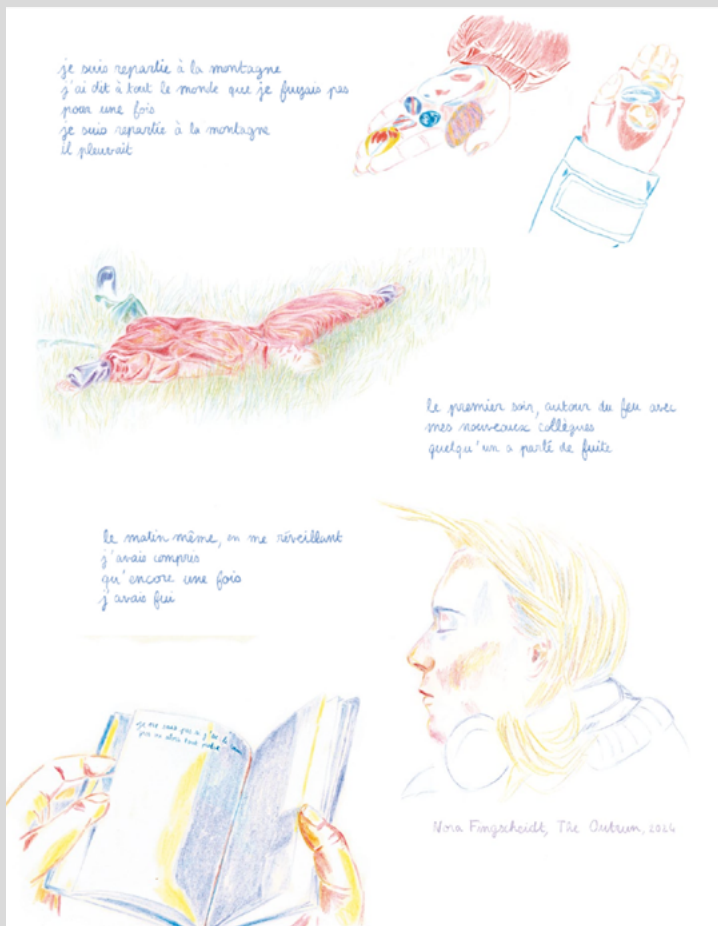 je suis repartie à la montagne
j'ai dit à tout le monde que je fuyais pas
pour une fois
je suis repartie à la montagne
il pleuvait
le premier soir, autour du feu avec
mes nouveaux collègues
quelqu'un a parlé de fuite
le matin même, en me réveillant
j'avais compris
qu'encore une fois
j'avais fui
je ne sais pas si j'ai
Nora Fingscheidt, The Outrun, 2024